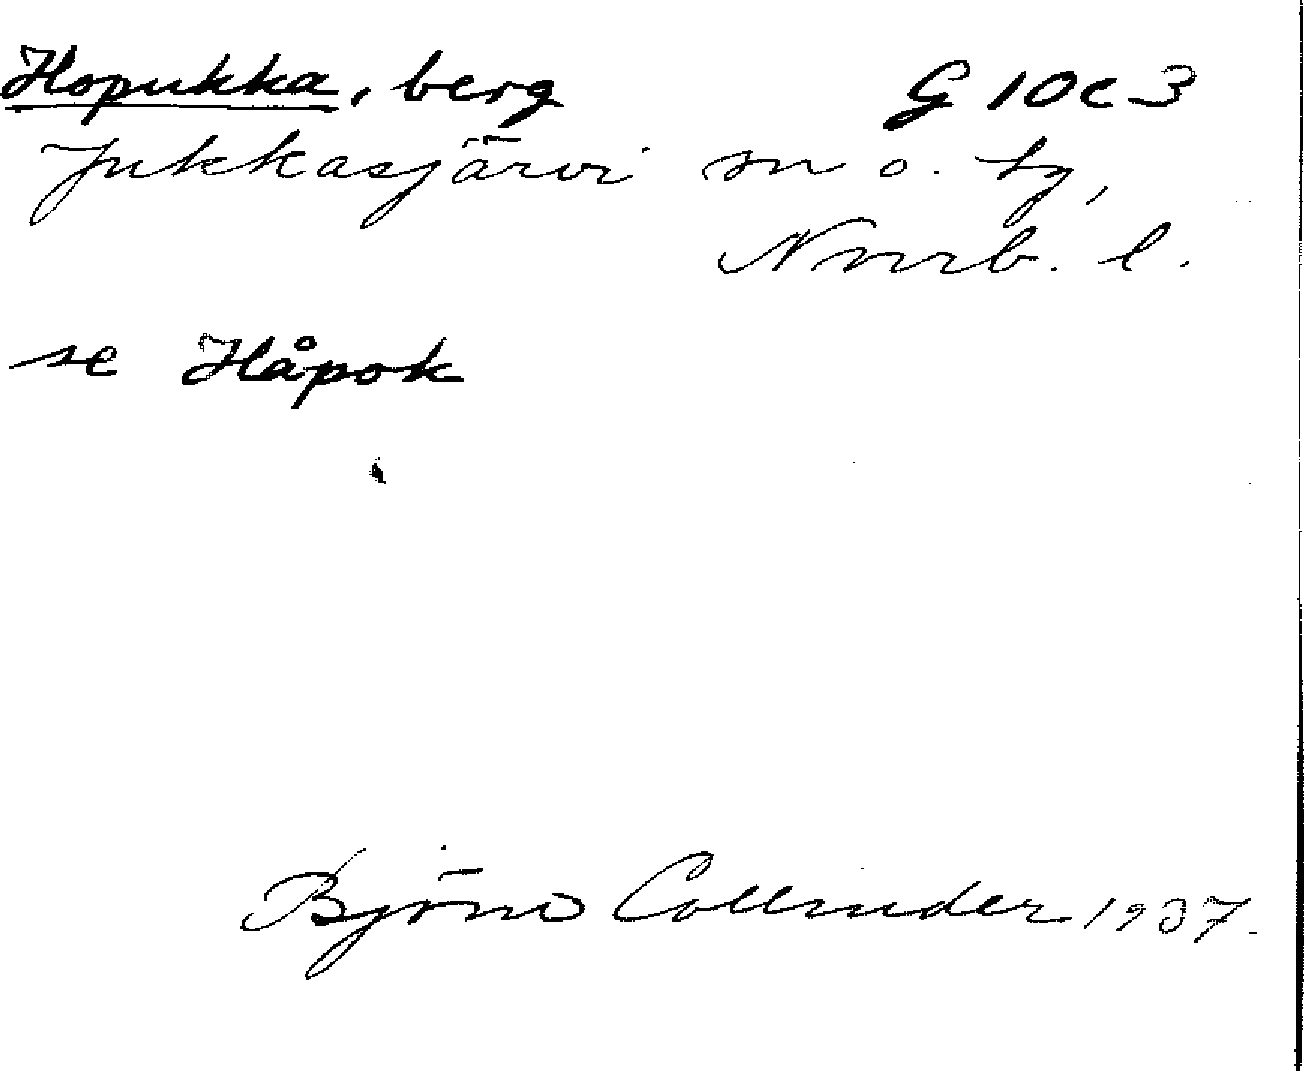 Hopukka, berg G 10 c 3
Jukkasjärvi sn o. tg,
Norrb. l.
se Håpok
Björn Collinder 1937.